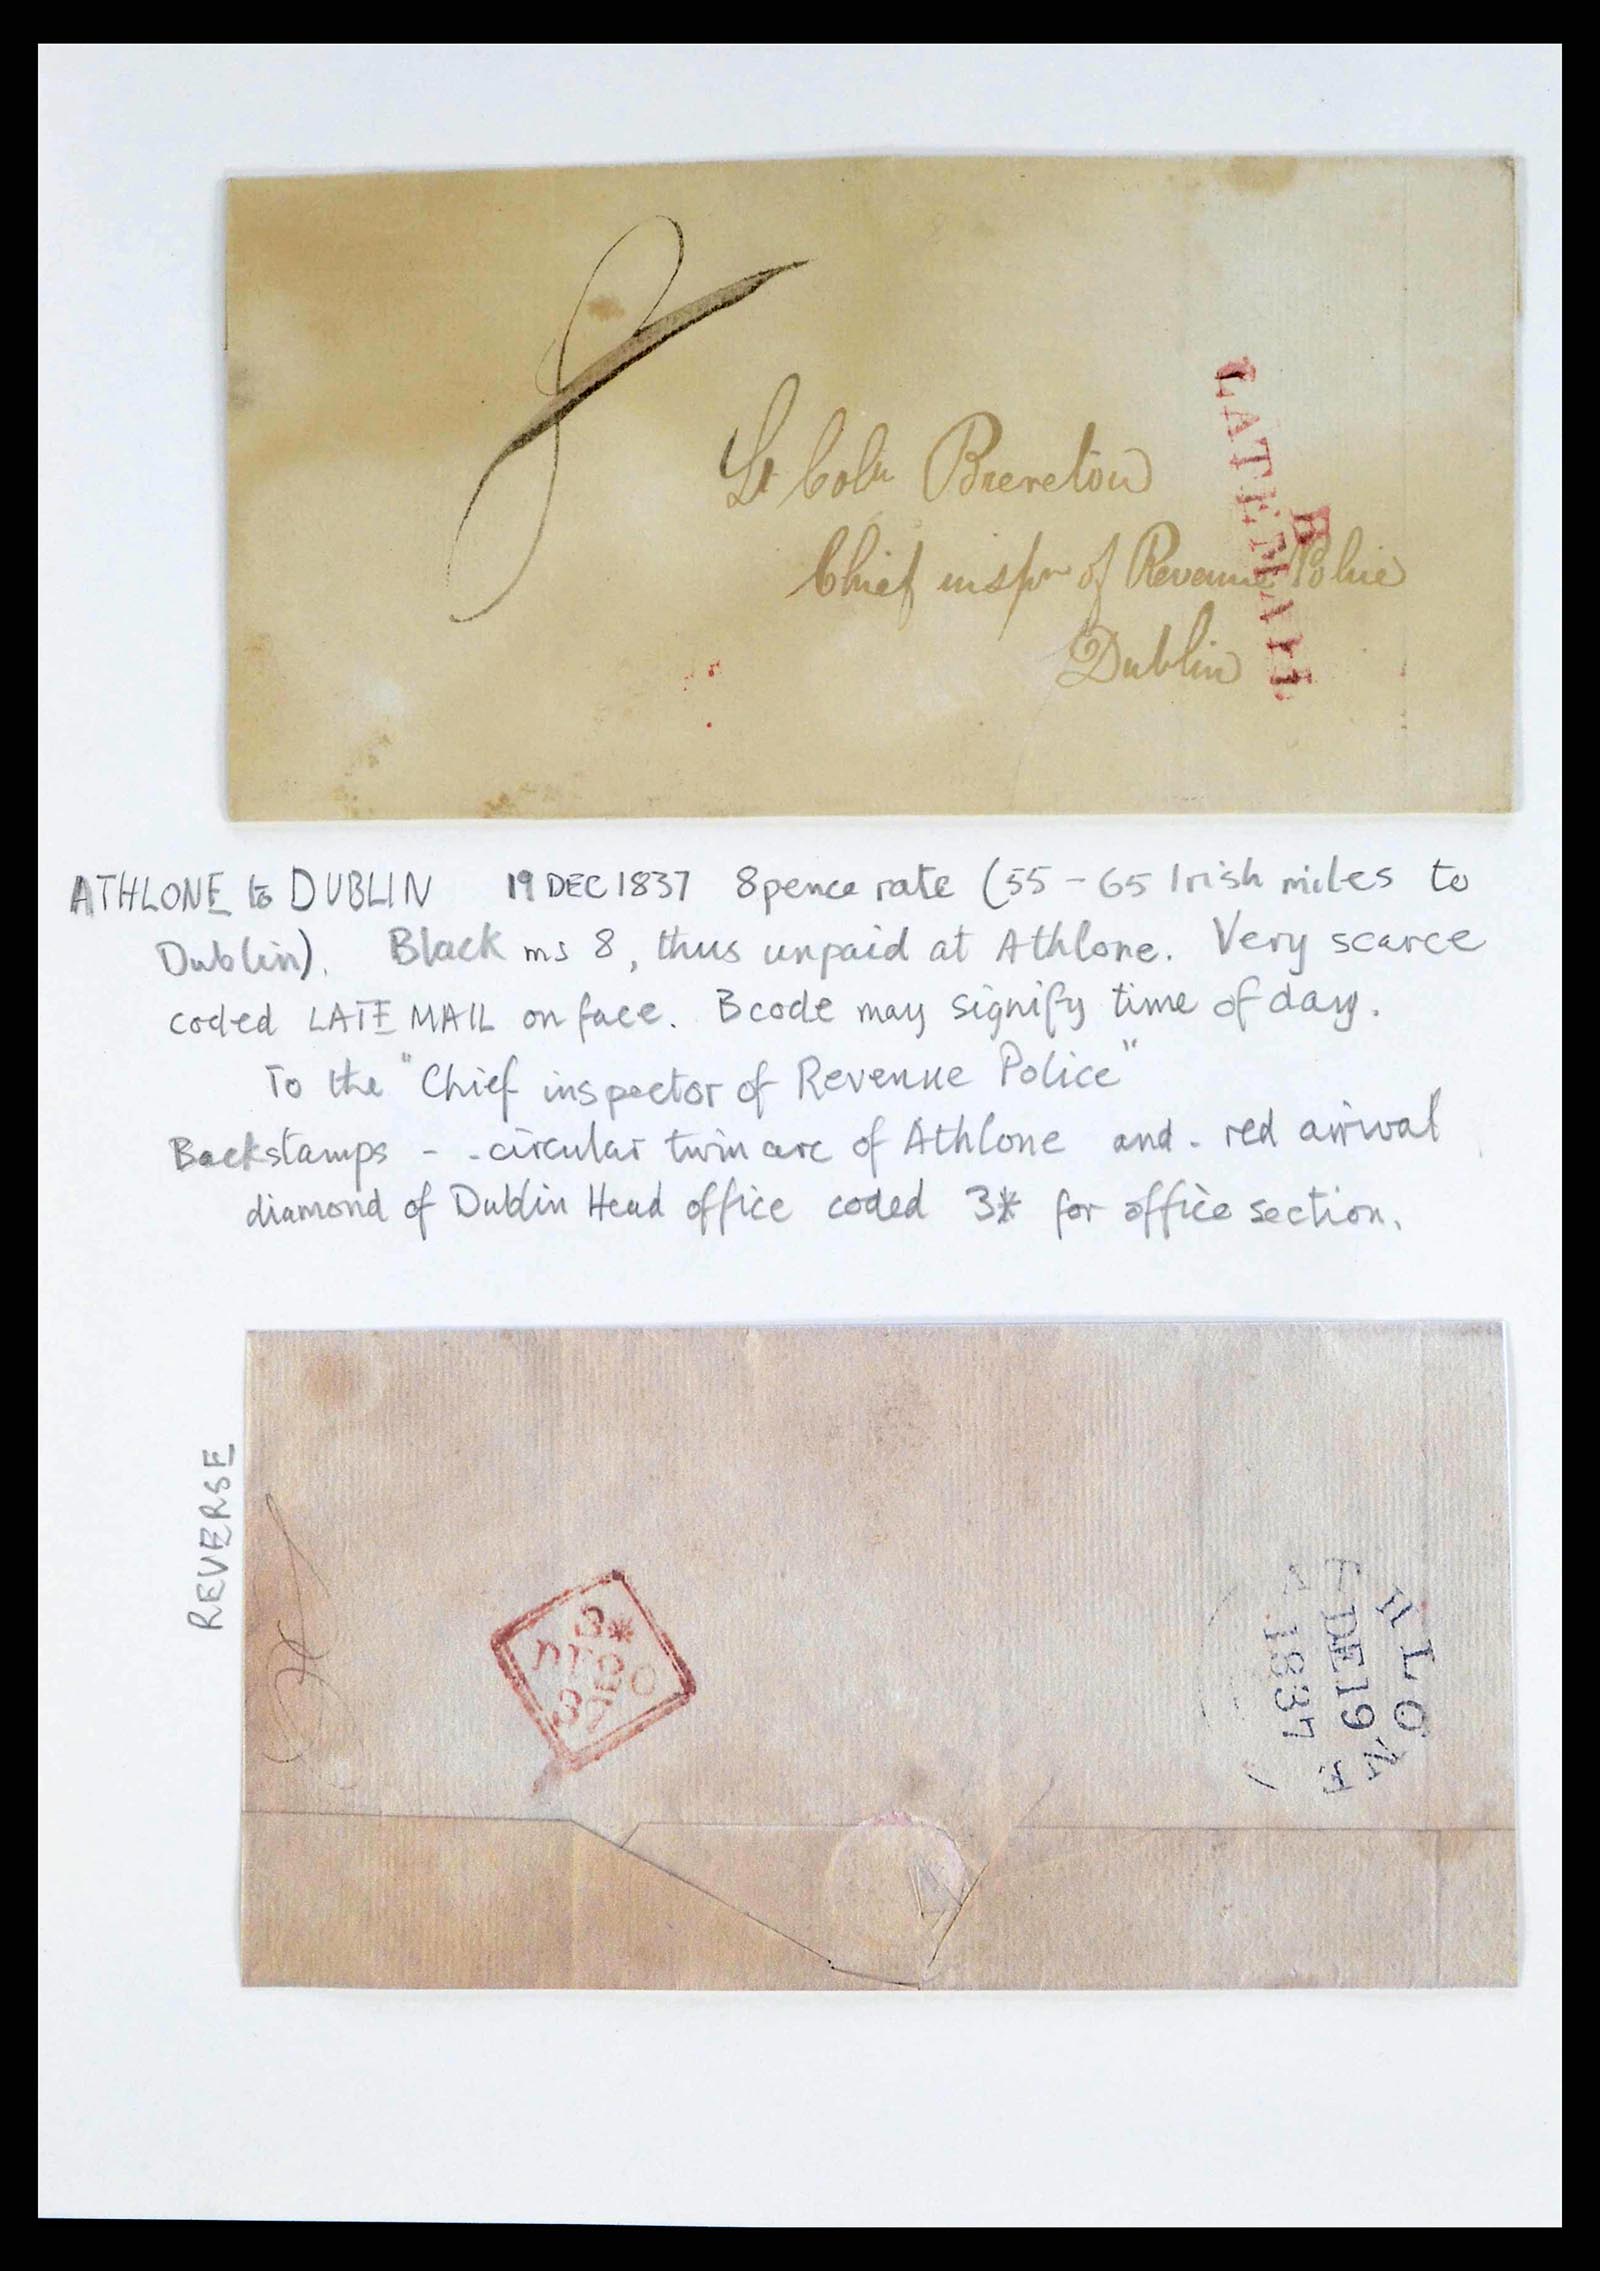 8
Lt Coln Brereton
Chief inspr of Revenue Police
Dublin
B
LATE MAIL
ATHLONE to DUBLIN 19 DEC 1837 8 pence rate (55 - 65 Irish miles to
Dublin). Black ms 8, thus unpaid at Athlone. Very scarce
coded LATE MAIL on face. B code may signify time of day.
To the "Chief inspector of Revenue Police"
Backstamps - - circular twin arc of Athlone and - red arrival
diamond of Dublin Head office coded 3* for office section.
REVERSE
3*
DE20
37
HLON
DE 19
1837